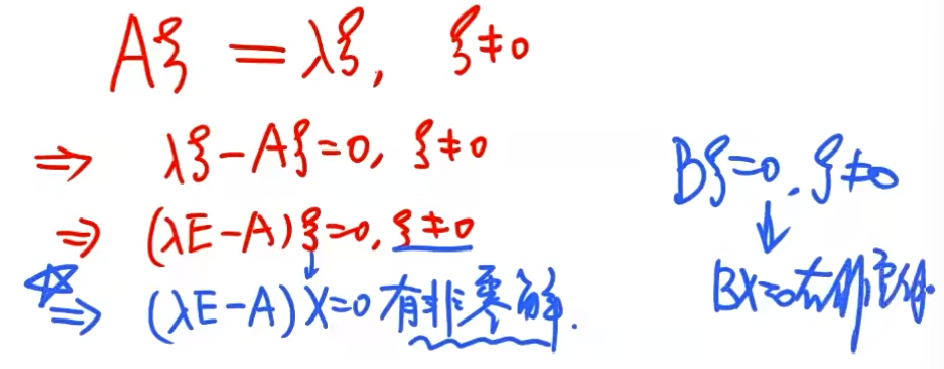 Aξ = λξ, ξ≠0
⇒ λξ-Aξ=0, ξ≠0
⇒ (λE-A)ξ=0, ξ≠0
☆⇒ (λE-A)X=0 有非零解.
Bξ=0, ξ≠0
↓
BX=0有非零解.